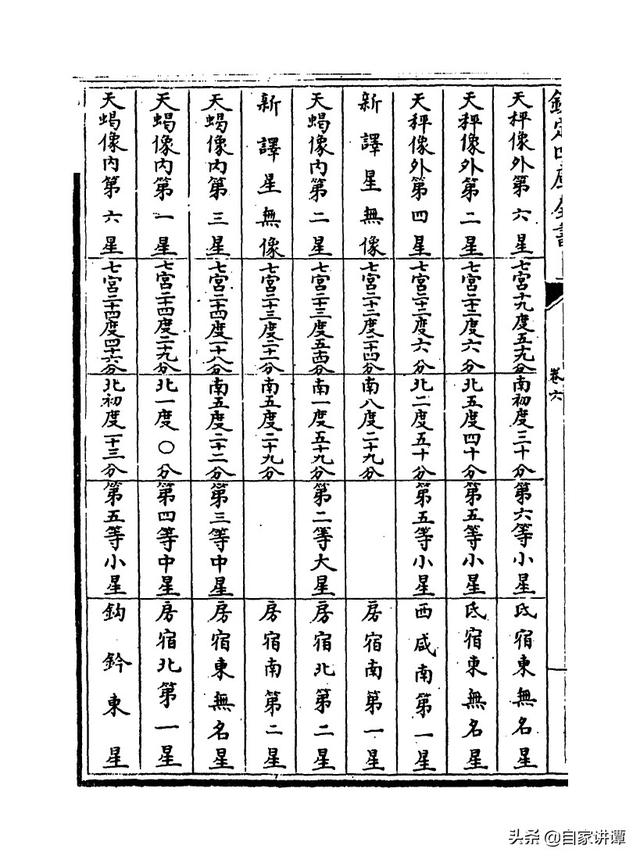 欽定四庫全書
卷六
天秤像外第六星 七宮十九度五九分 南初度三十分 第六等小星 氐宿東無名星
天秤像外第二星 七宮二十二度六分 北五度四十分 第五等小星 氐宿東無名星
天秤像外第四星 七宮二十二度六分 北二度五十分 第五等小星 西咸南第一星
新譯星無像 七宮二十二度二十四分 南八度二十九分 房宿南第一星
天蝎像內第二星 七宮二十三度五十四分 南一度五十九分 第二等大星 房宿北第二星
新譯星無像 七宮二十三度二十一分 南五度二十九分 房宿南第二星
天蝎像內第三星 七宮二十四度一十八分 南五度二十二分 第三等中星 房宿東無名星
天蝎像內第一星 七宮二十四度二十九分 北一度〇分 第四等中星 房宿北第一星
天蝎像內第六星 七宮二十四度四十六分 北初度一十三分 第五等小星 鈎鈐東星
头条 @自家讲谭